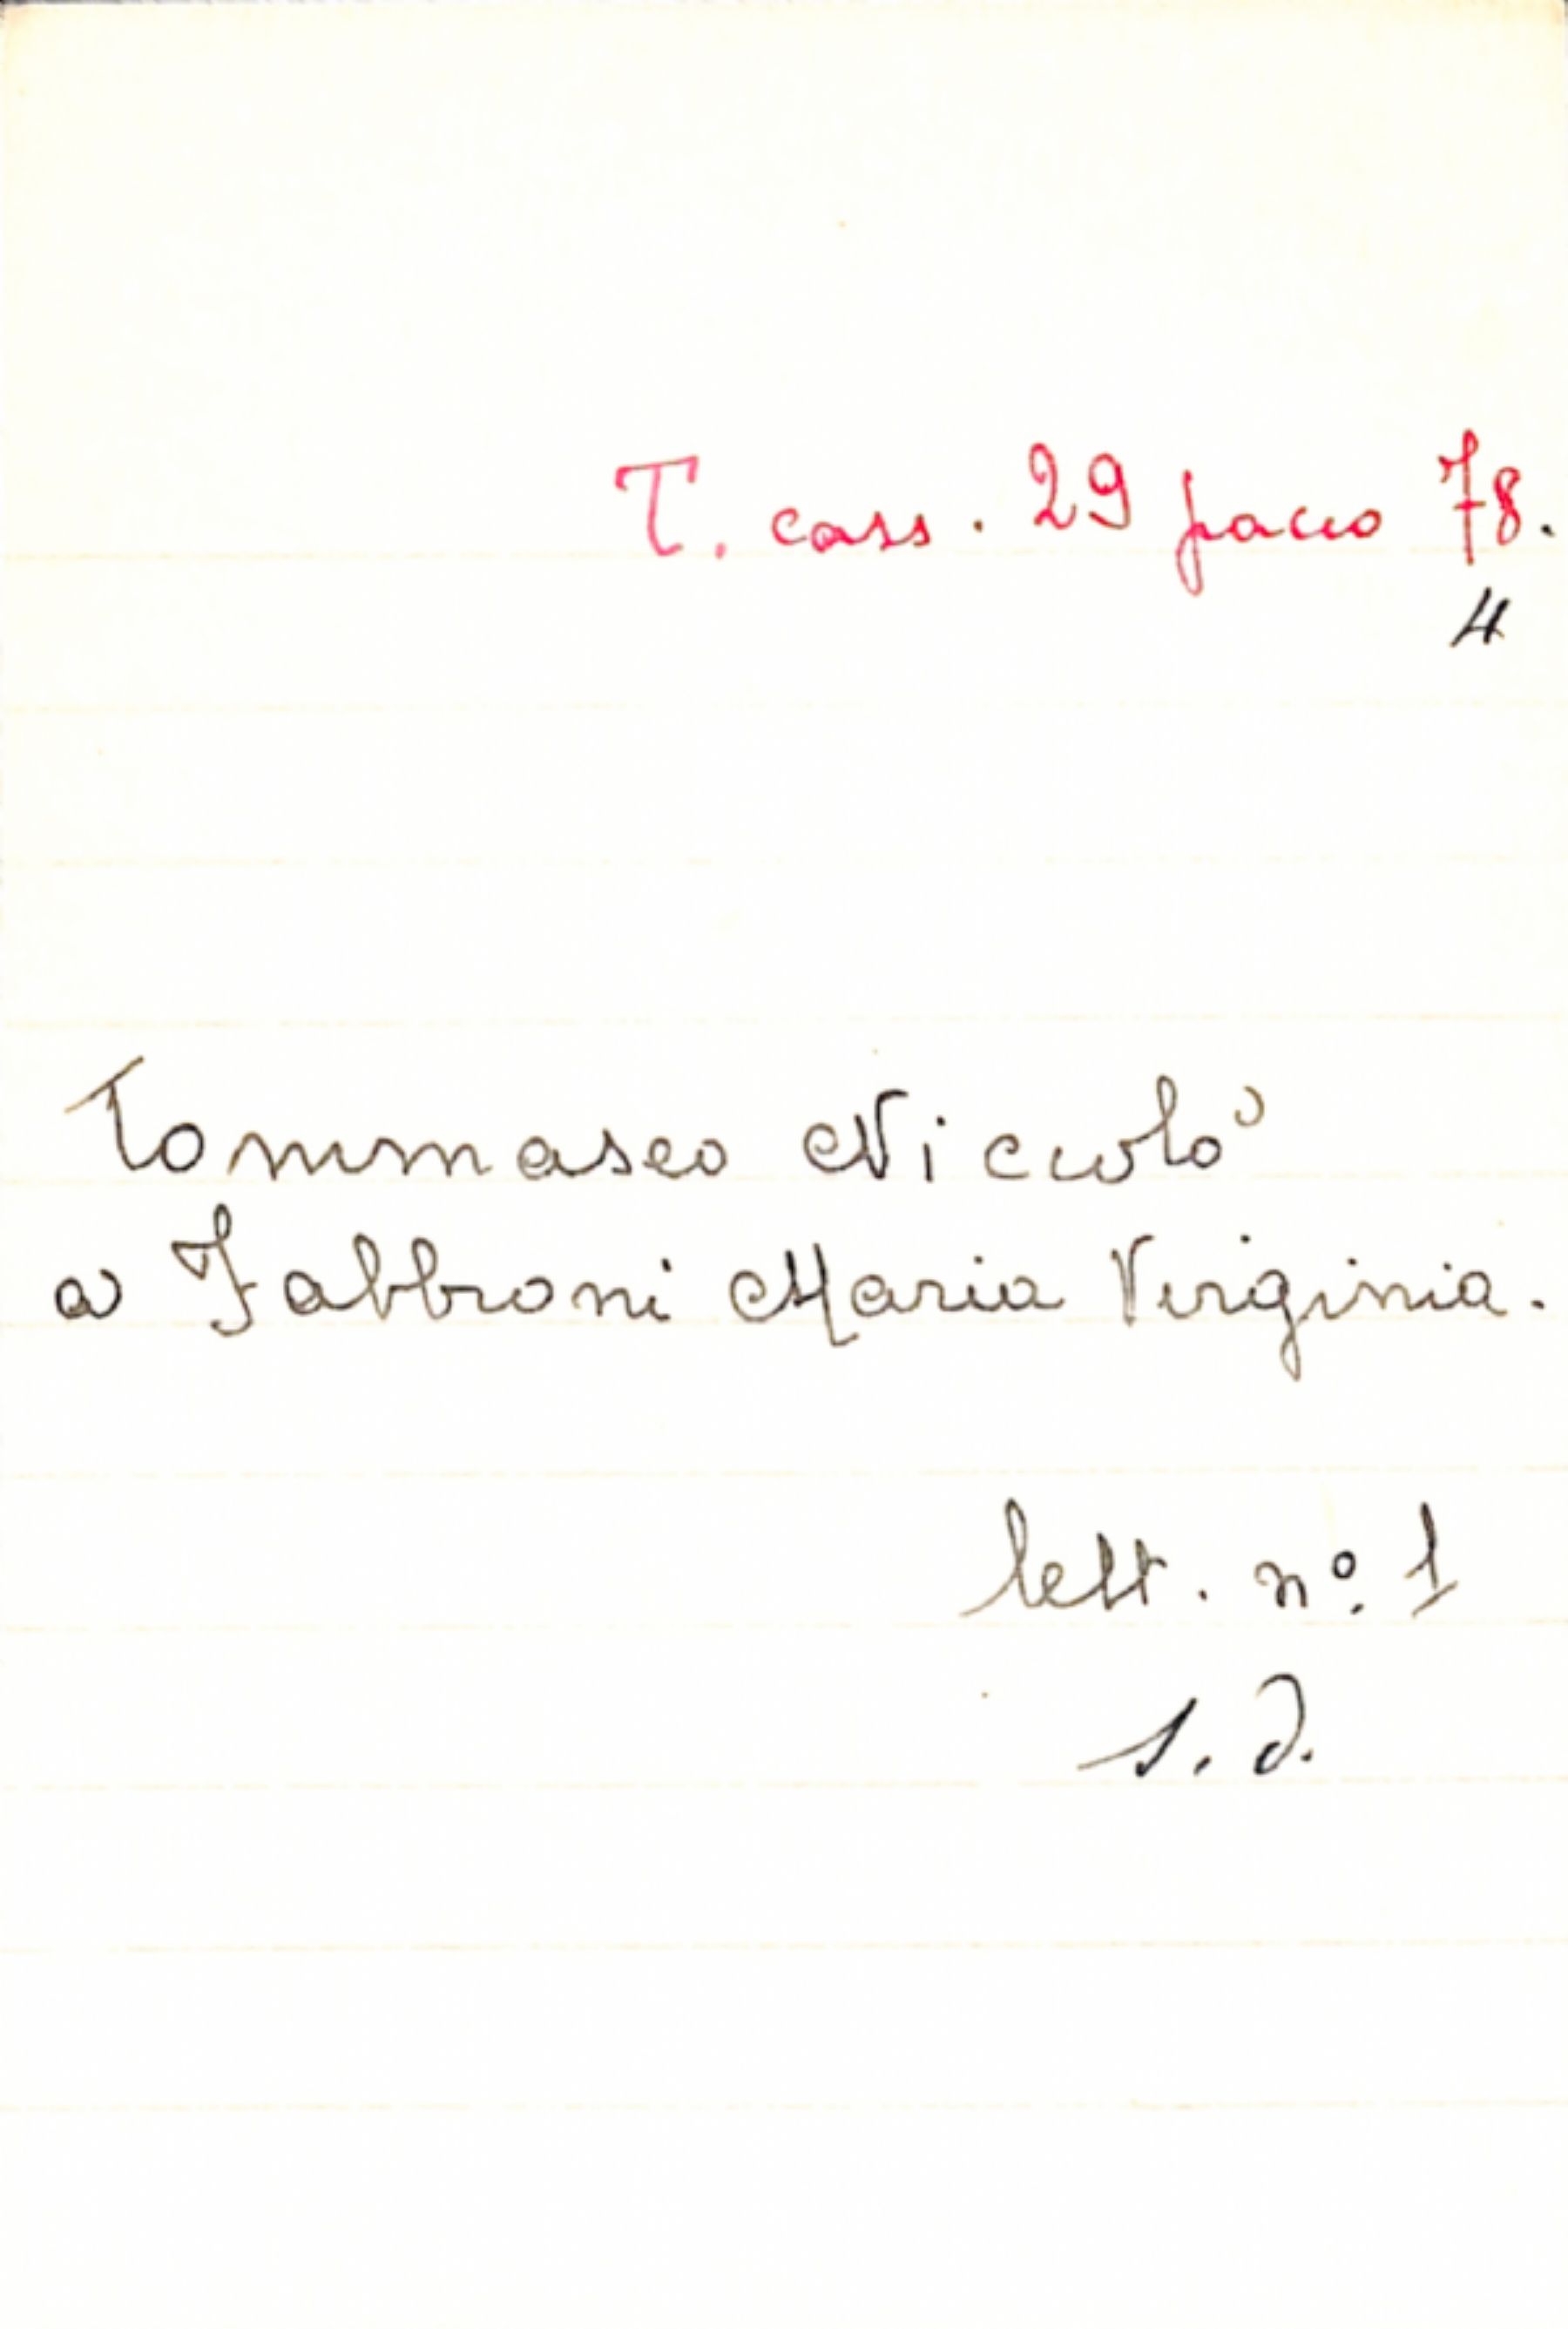 T. cass. 29 pacco 78.
4
Tommaseo Niccolò
a Fabbroni Maria Virginia.
lett. n.º 1
s. d.